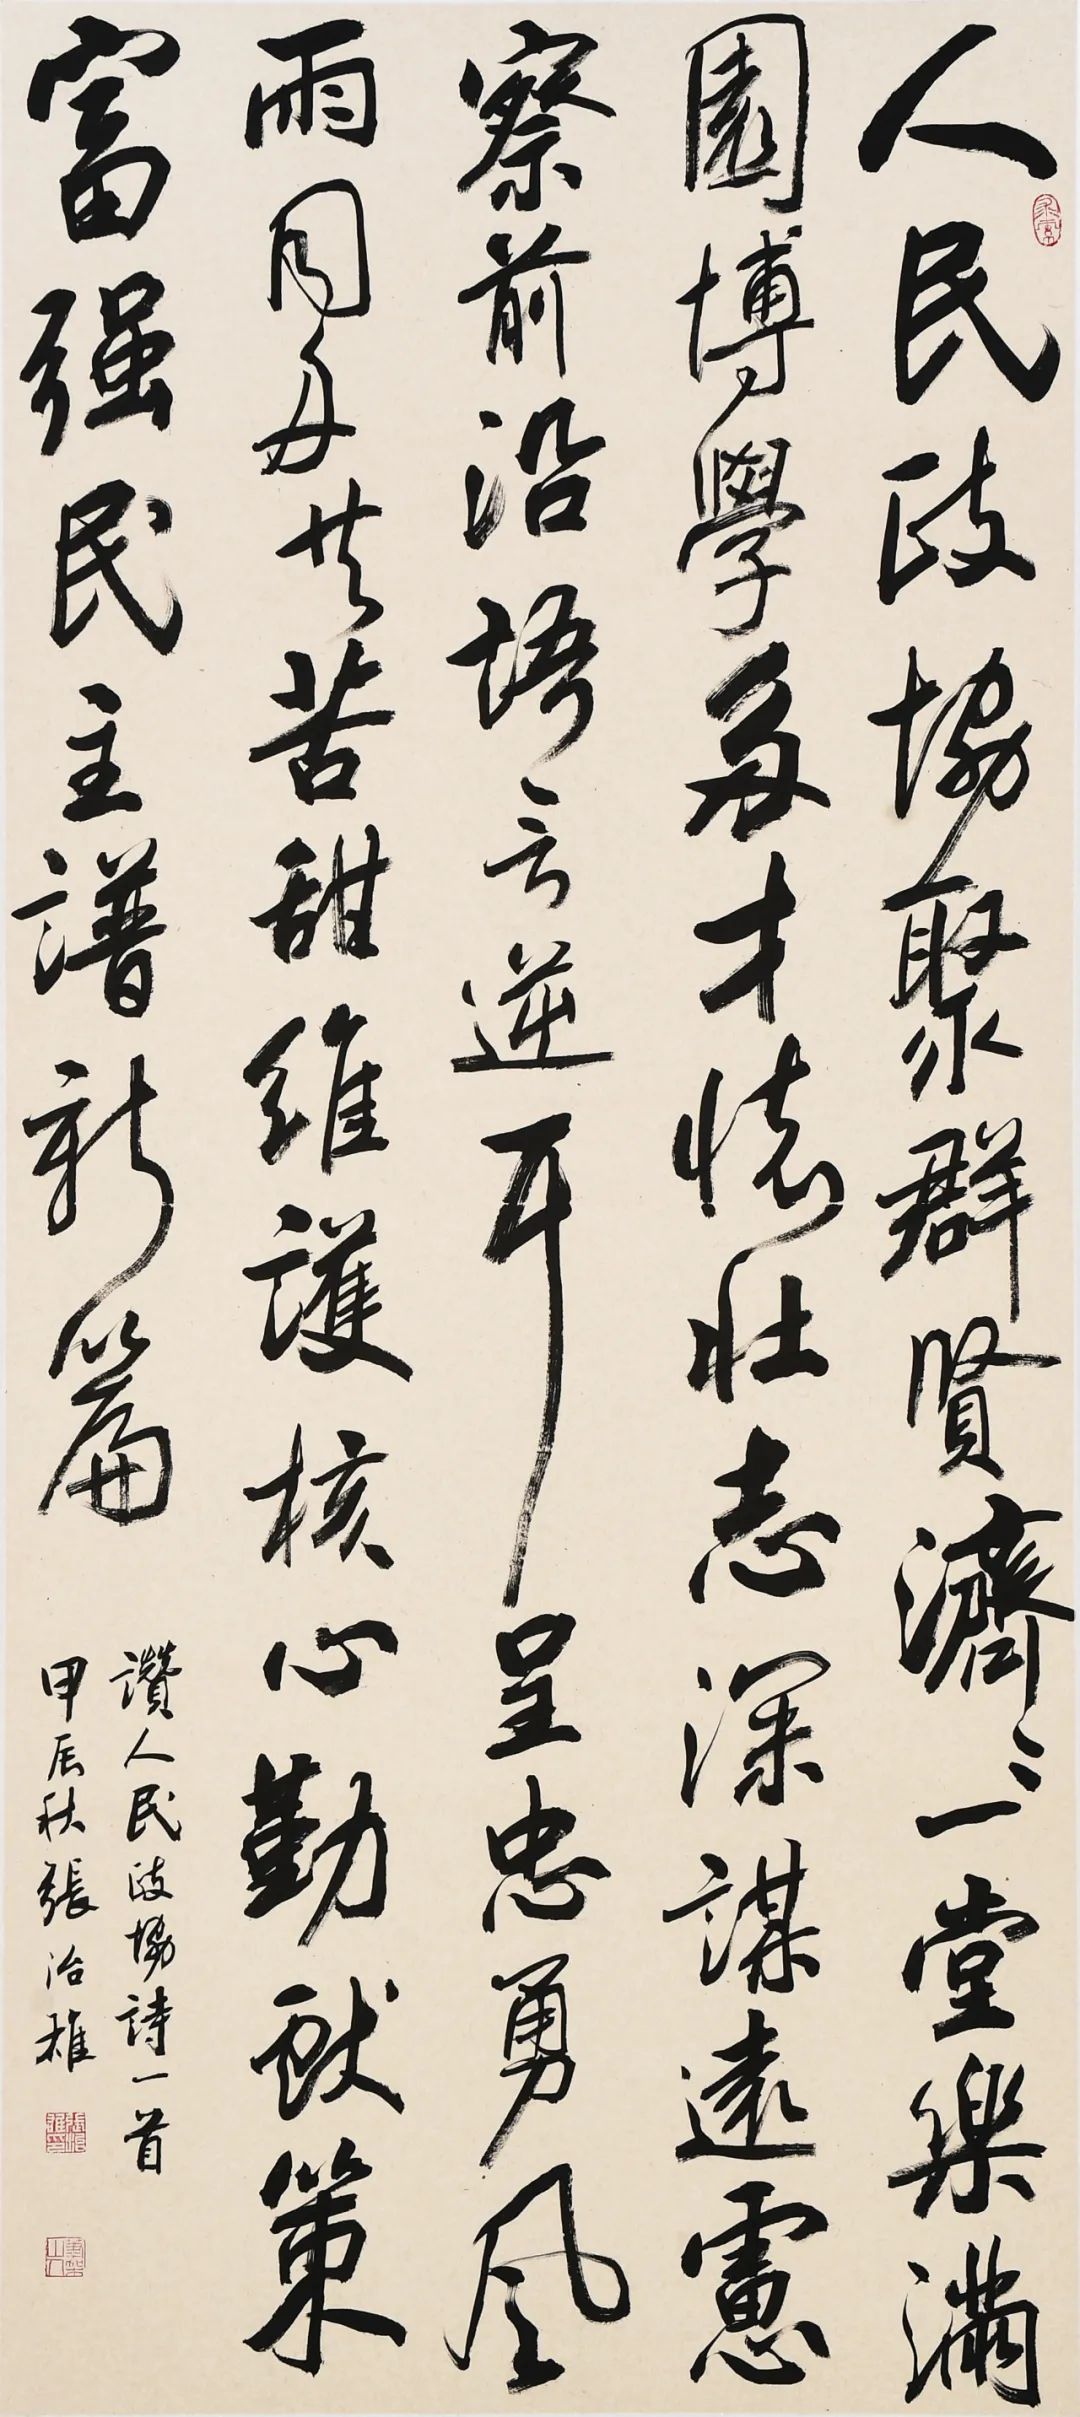 人民政協聚群賢濟〻一堂樂滿
園博學多才懷壯志深謀遠慮
察前沿言逆耳呈忠勇風
雨同舟共苦甜維護核心勤獻策
富强民主譜新篇
讚人民政協詩一首
甲辰秋張治雄